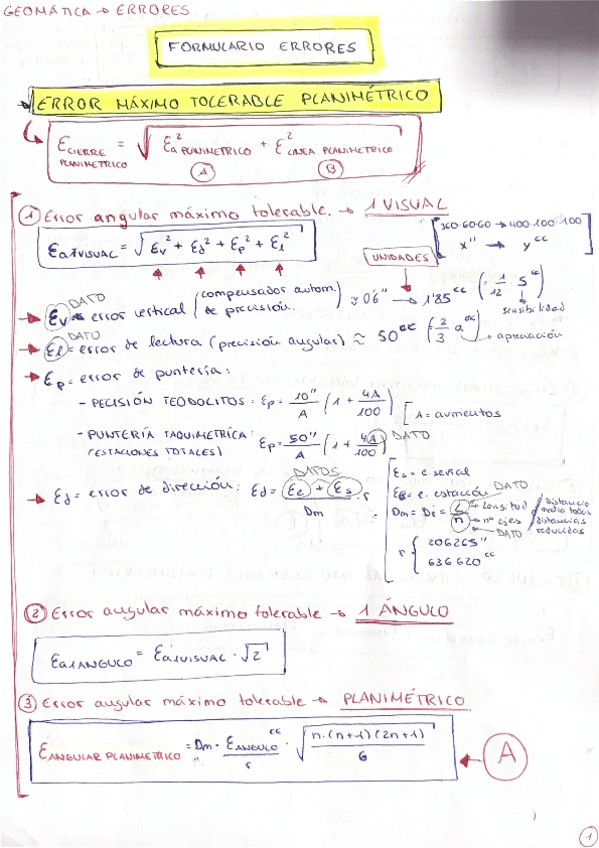 GEOMÁTICA → ERRORES
FORMULARIO ERRORES
ERROR MÁXIMO TOLERABLE PLANIMÉTRICO
ε CIERRE PLANIMÉTRICO = √(ε² a PLANIMETRICO + ε² CINTA PLANIMETRICO)
A B
① Error angular máximo tolerable. → 1 VISUAL
360·60·60 → 400·100·100
x'' → y^cc
εa1VISUAL = √(εv² + εd² + εp² + εl²)
UNIDADES
DATO
εv = error vertical (compensador autom. de precisión. ≈ 0'6'' → 1'85^cc (= 1/12 · S^cc)
sensibilidad
DATO
εl = error de lectura (precisión angular) ≈ 50^cc (= 2/3 a^cc) → apreciación
εp = error de puntería:
- PECISIÓN TEODOLITOS = εp = 10''/A (1 + 4A/100) [A = aumentos
- PUNTERÍA TAQUIMETRICA: εp = 50''/A (1 + 4A/100) DATO
(ESTACIONES TOTALES)
DATOS
εd = error de dirección: εd = (εe + εs)/Dm · r
εs = e. señal
εe = e. estación DATO
Dm = Di = L/n → longitud → nº ejes DATO
Distancia media todas distancias reducidas
r { 206265''
636620^cc
② Error angular máximo tolerable → 1 ÁNGULO
εa1ANGULO = εa1VISUAL · √2
③ Error angular máximo tolerable → PLANIMÉTRICO
ε ANGULAR PLANIMETRICO = Dm · ε ANGULO^cc / r · √(n·(n+1)(2n+1)/6)
A
1